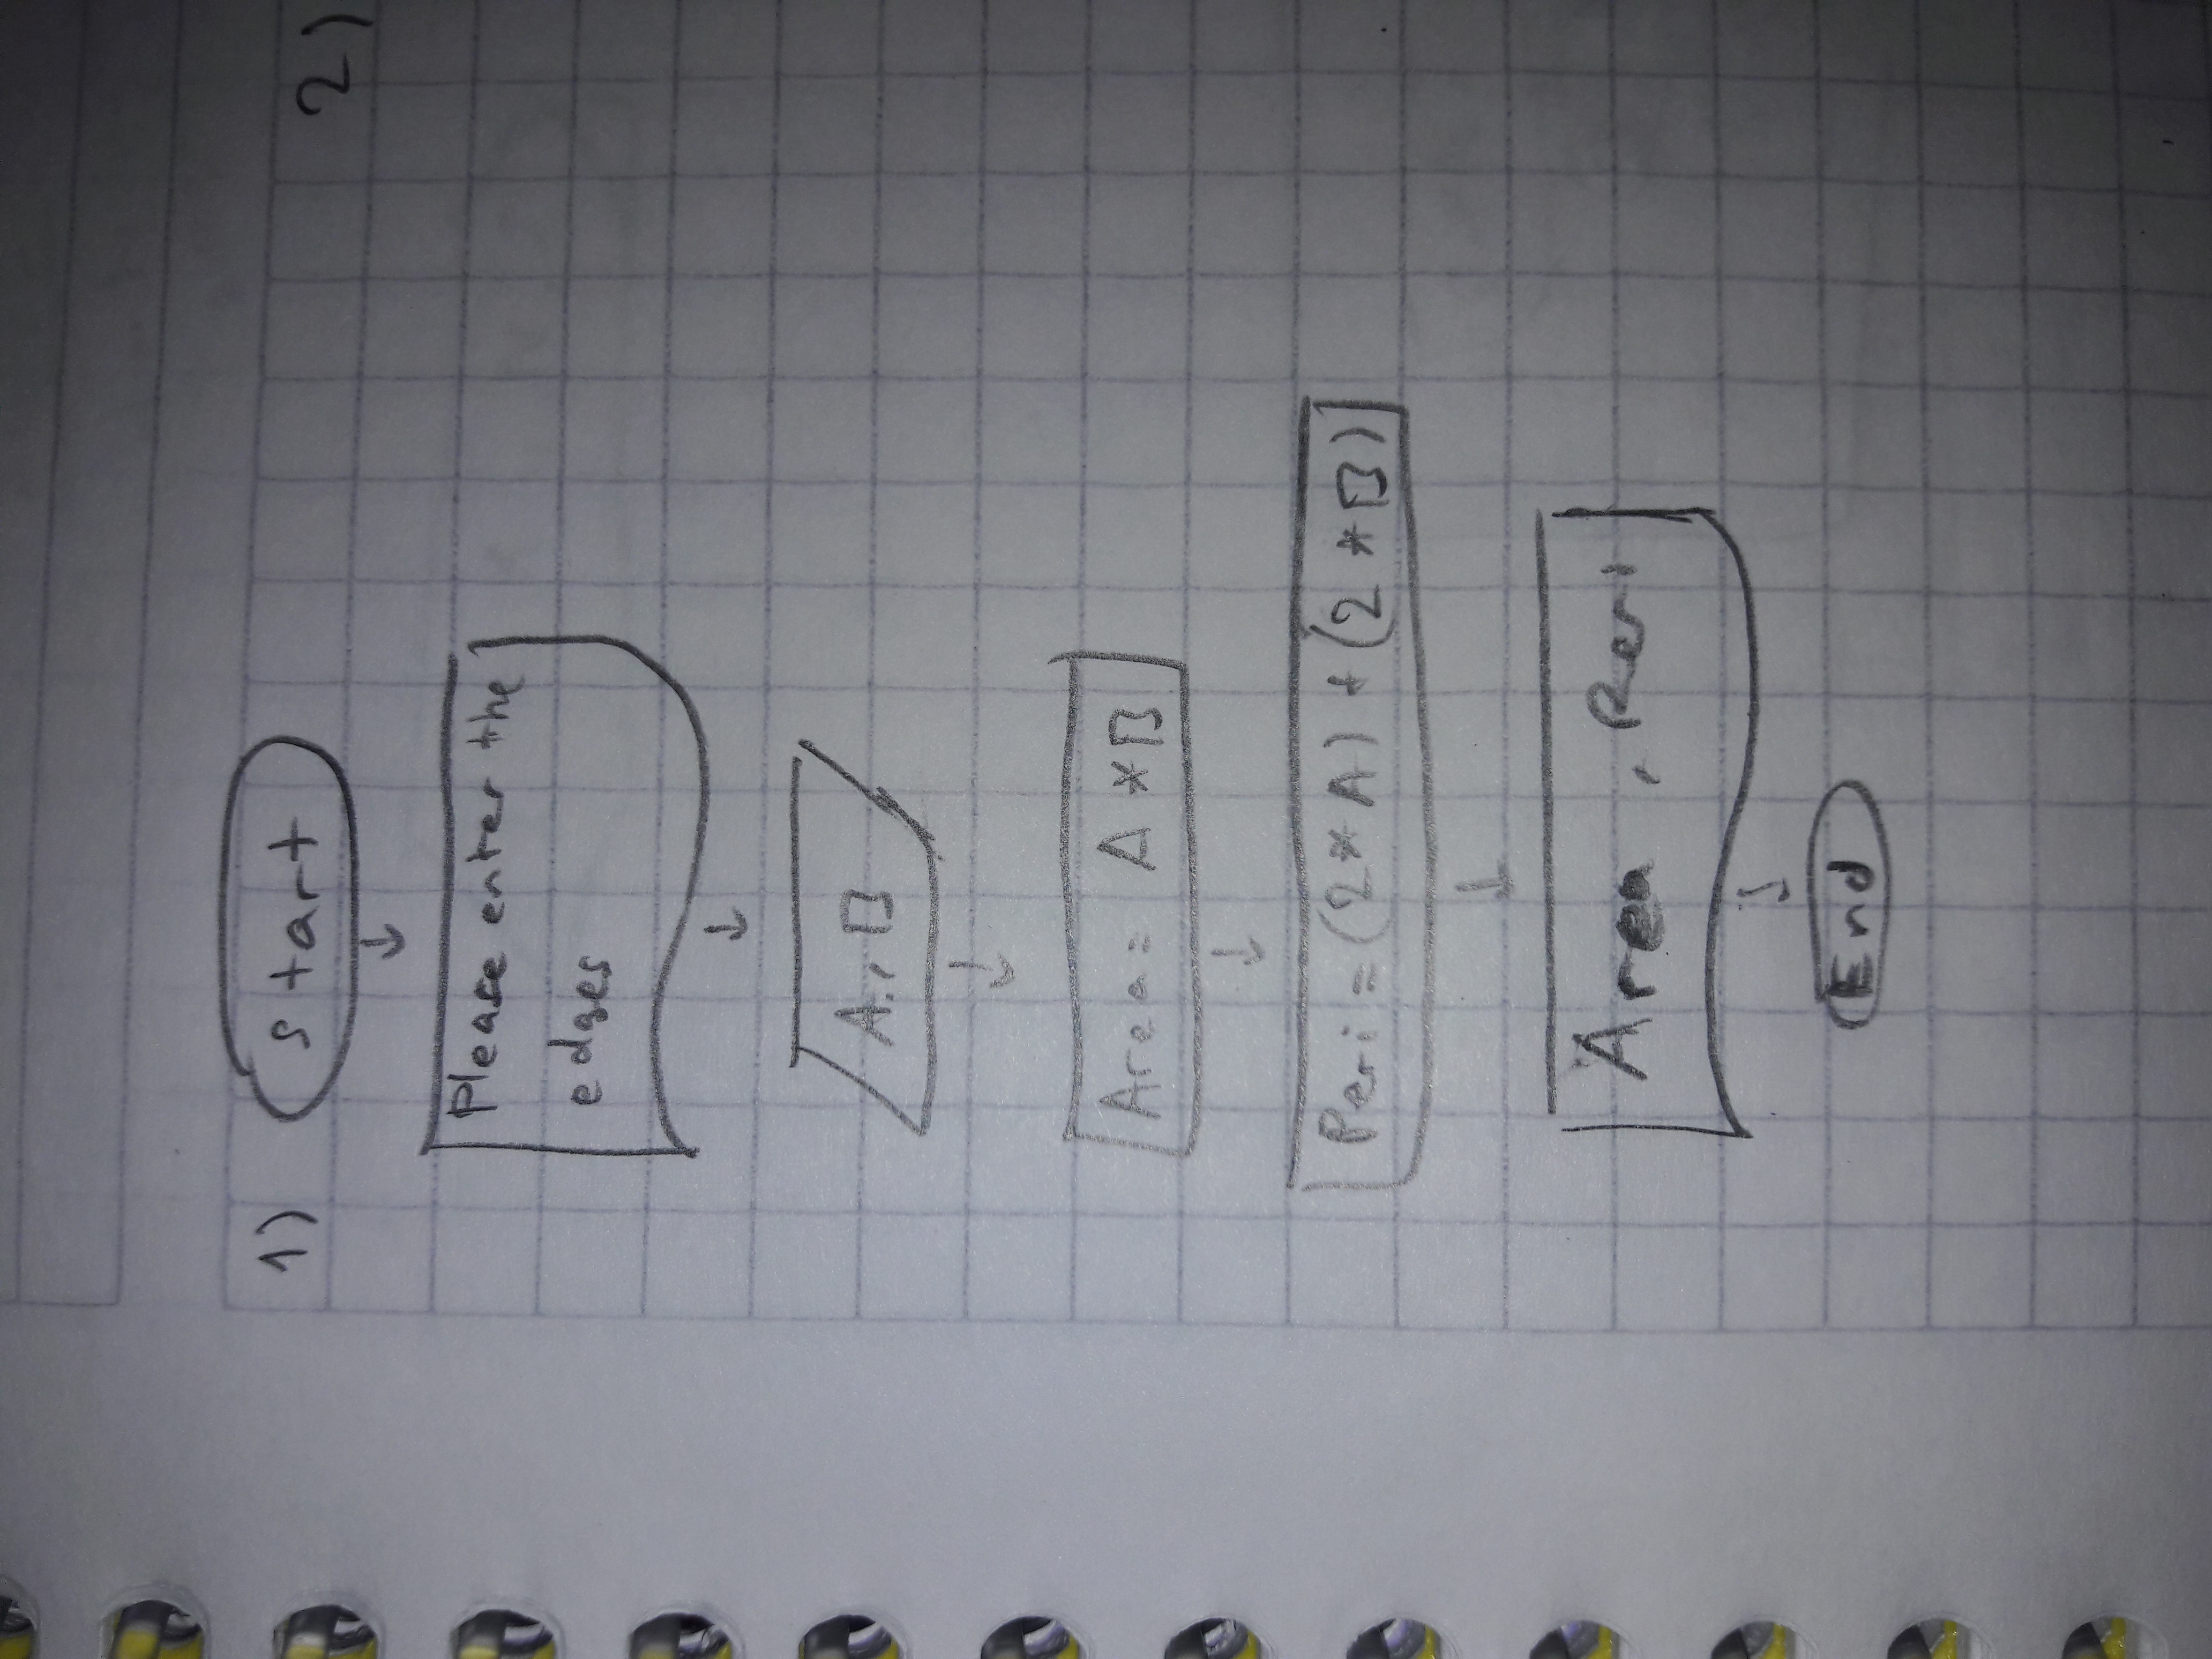 1) start
2)
Please enter the
edges
A, B
Area = A * B
Peri = (2 * A) + (2 * B)
Area, Peri
End